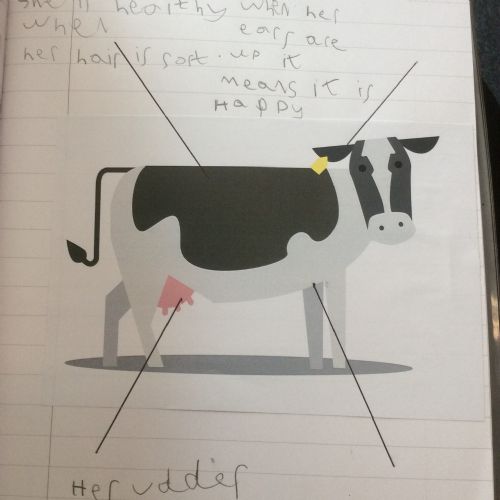 she is healthy when her
when ears are
her hair is soft. up it
means it is
Happy
Her udder